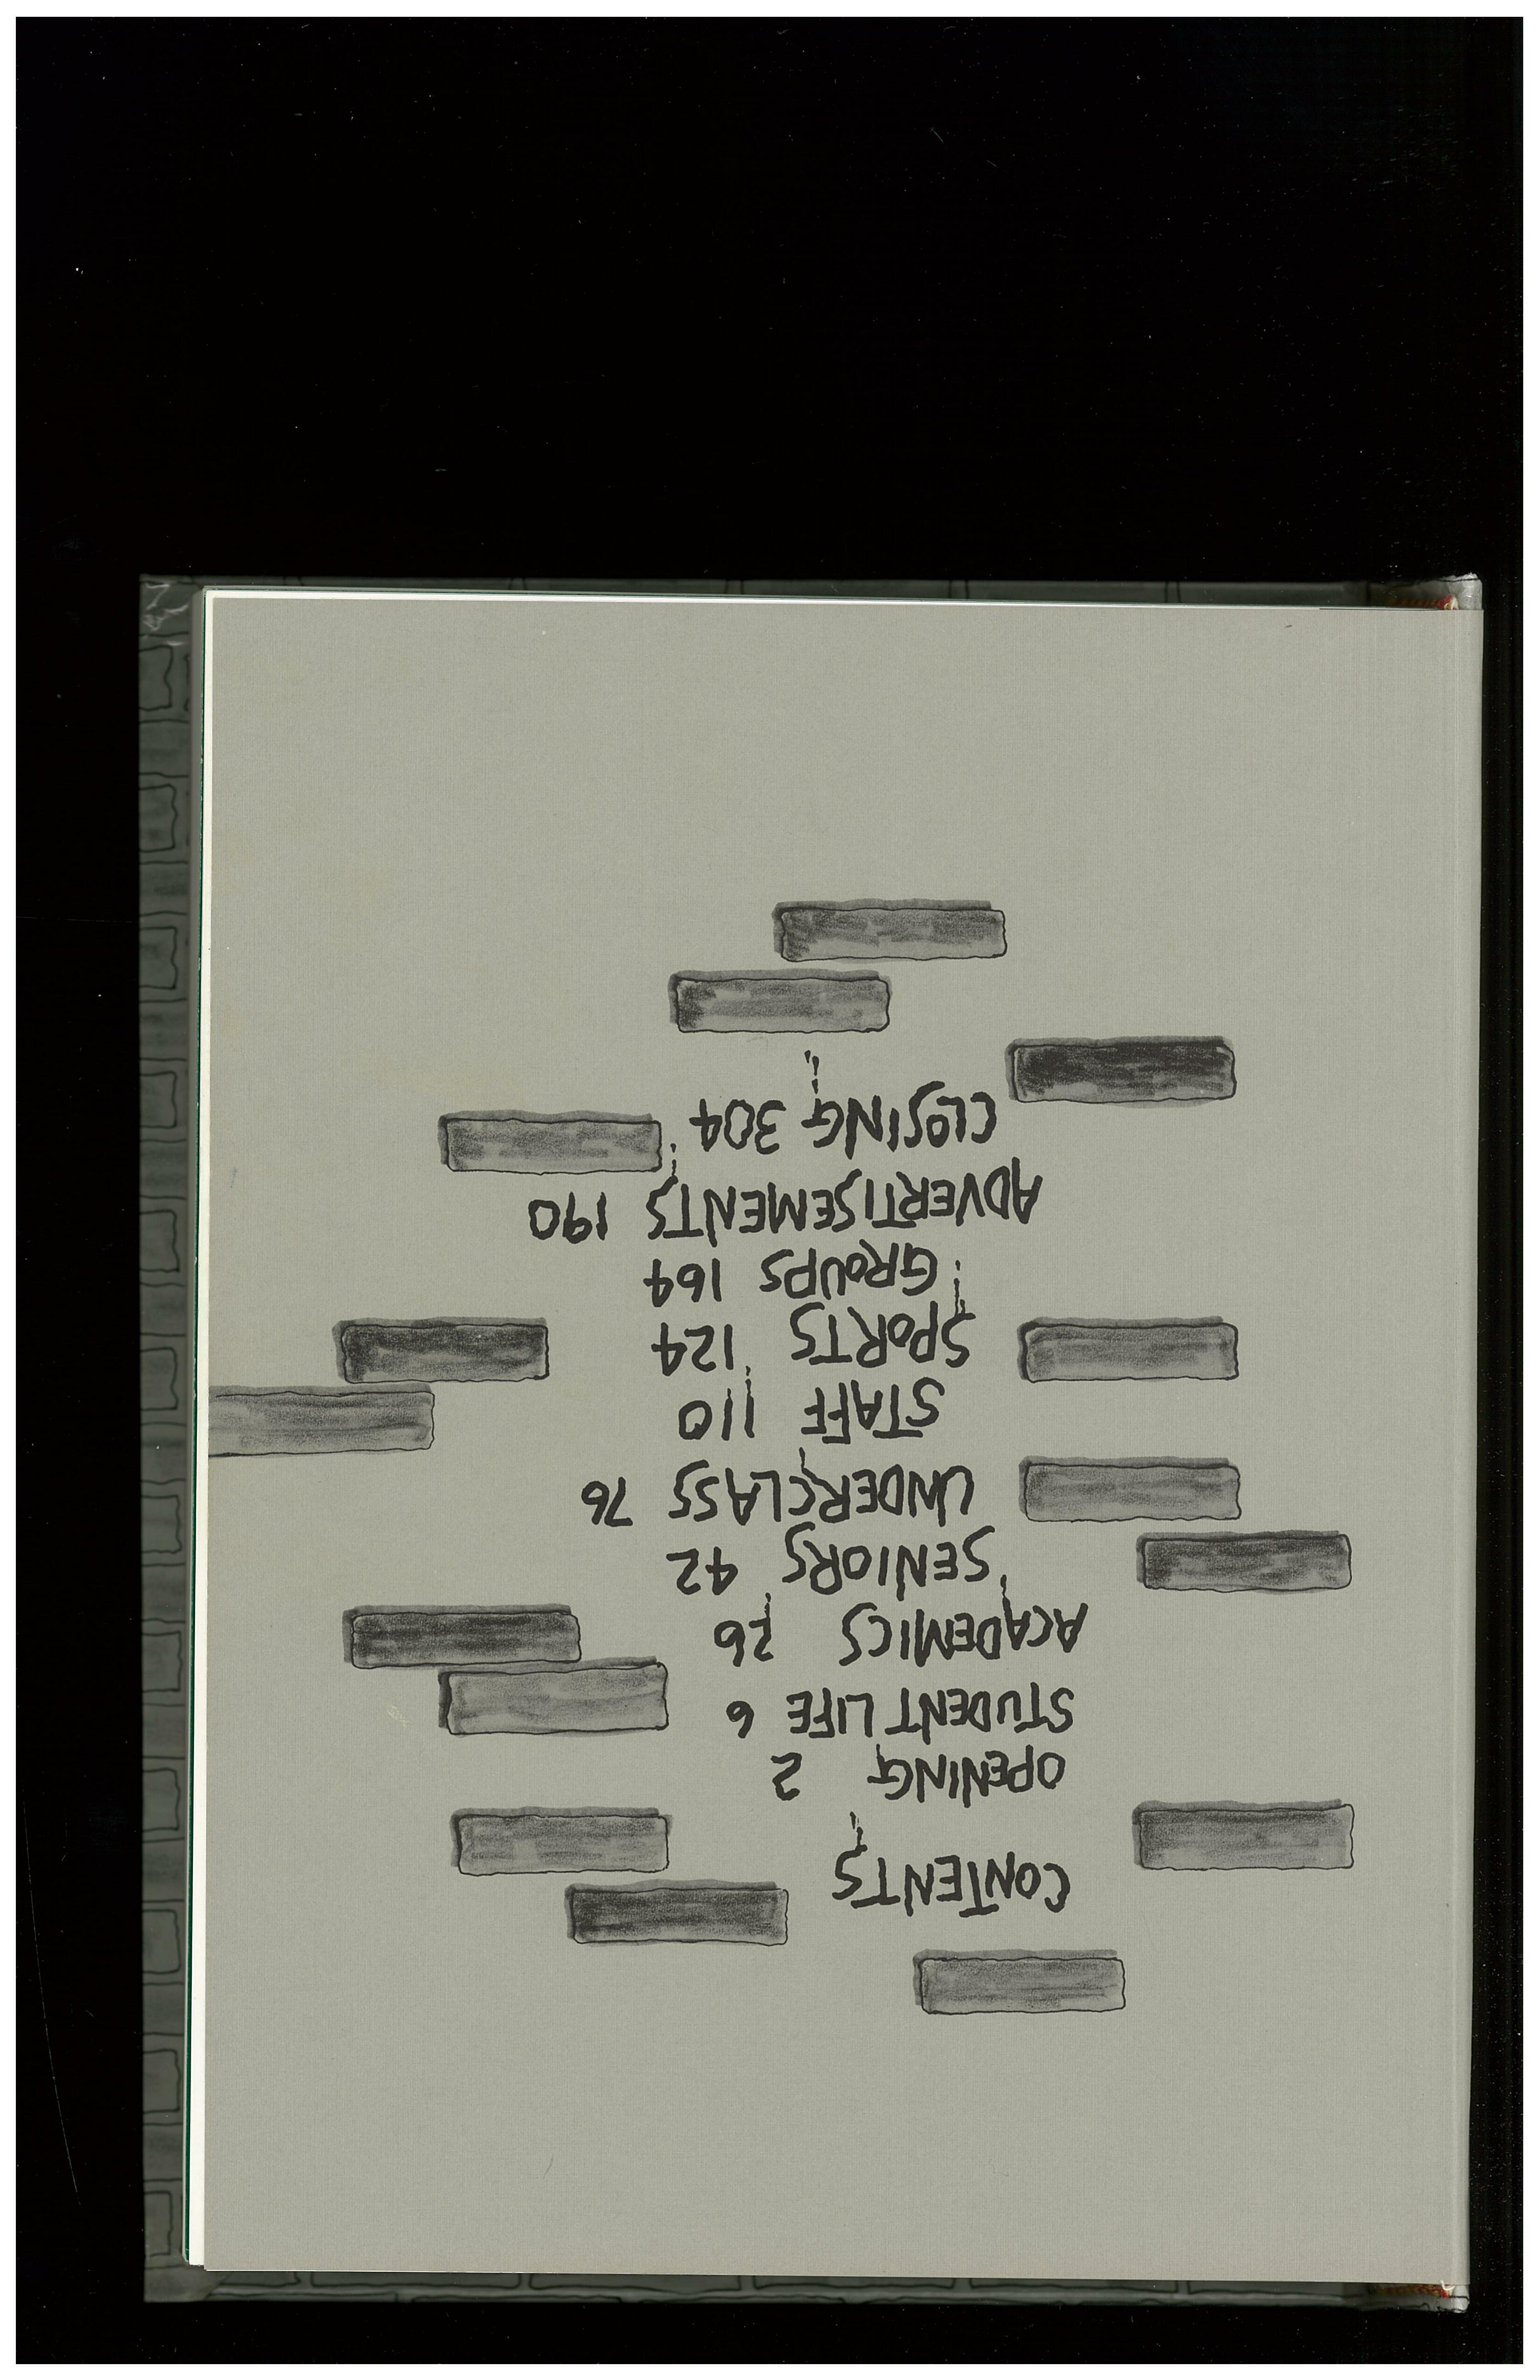 CONTENTS
OPENING 2
STUDENT LIFE 6
ACADEMICS 26
SENIORS 42
UNDERCLASS 76
STAFF 110
SPORTS 124
GROUPS 164
ADVERTISEMENTS 190
CLOSING 304